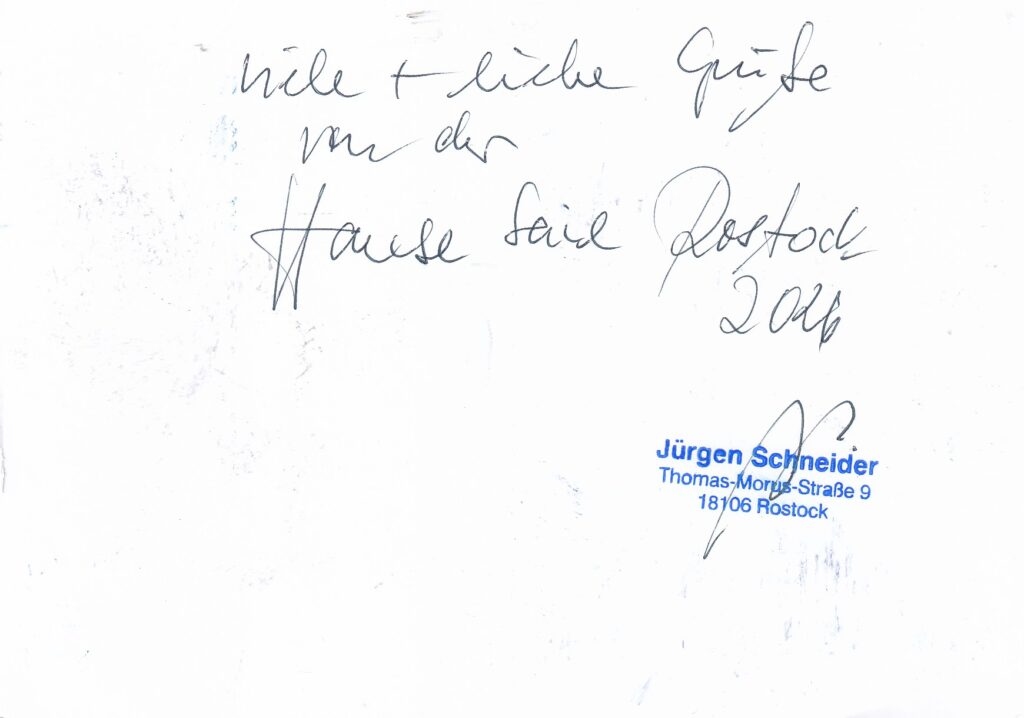 viele + liebe Grüße
von der
Hanse Sail Rostock
2026
Jürgen Schneider
Thomas-Morus-Straße 9
18106 Rostock